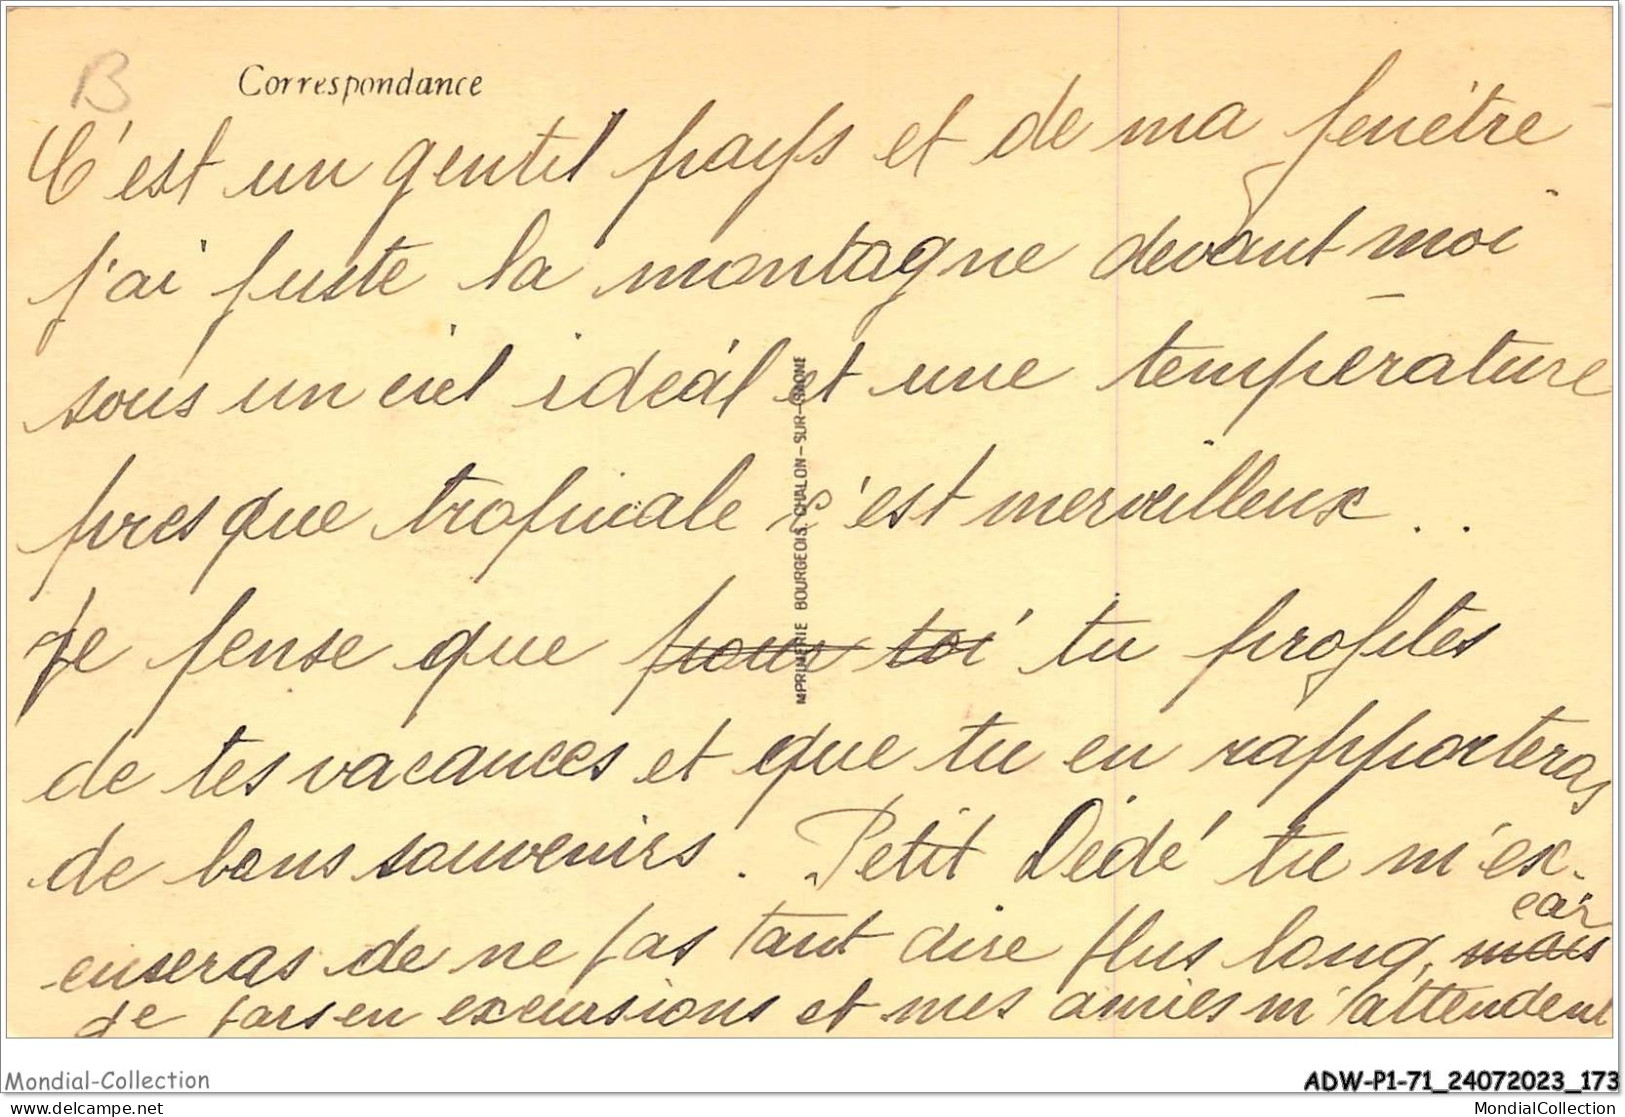 B
Correspondance
C'est un gentil pays et de ma fenêtre
j'ai juste la montagne devant moi
sous un ciel idéal et une température
presque tropicale c'est merveilleux..
Je pense que pour toi tu profites
de tes vacances et que tu en rapporteras
de bons souvenirs. Petit Dédé tu m'ex-
cuseras de ne pas tant dire plus long, mais car
je pars en excursions et mes amies m'attendent
MPRIMERIE BOURGEOIS, CHALON-SUR-SAONE
Mondial-Collection
ADW-P1-71_24072023_173
delcampe.net
MondialCollection